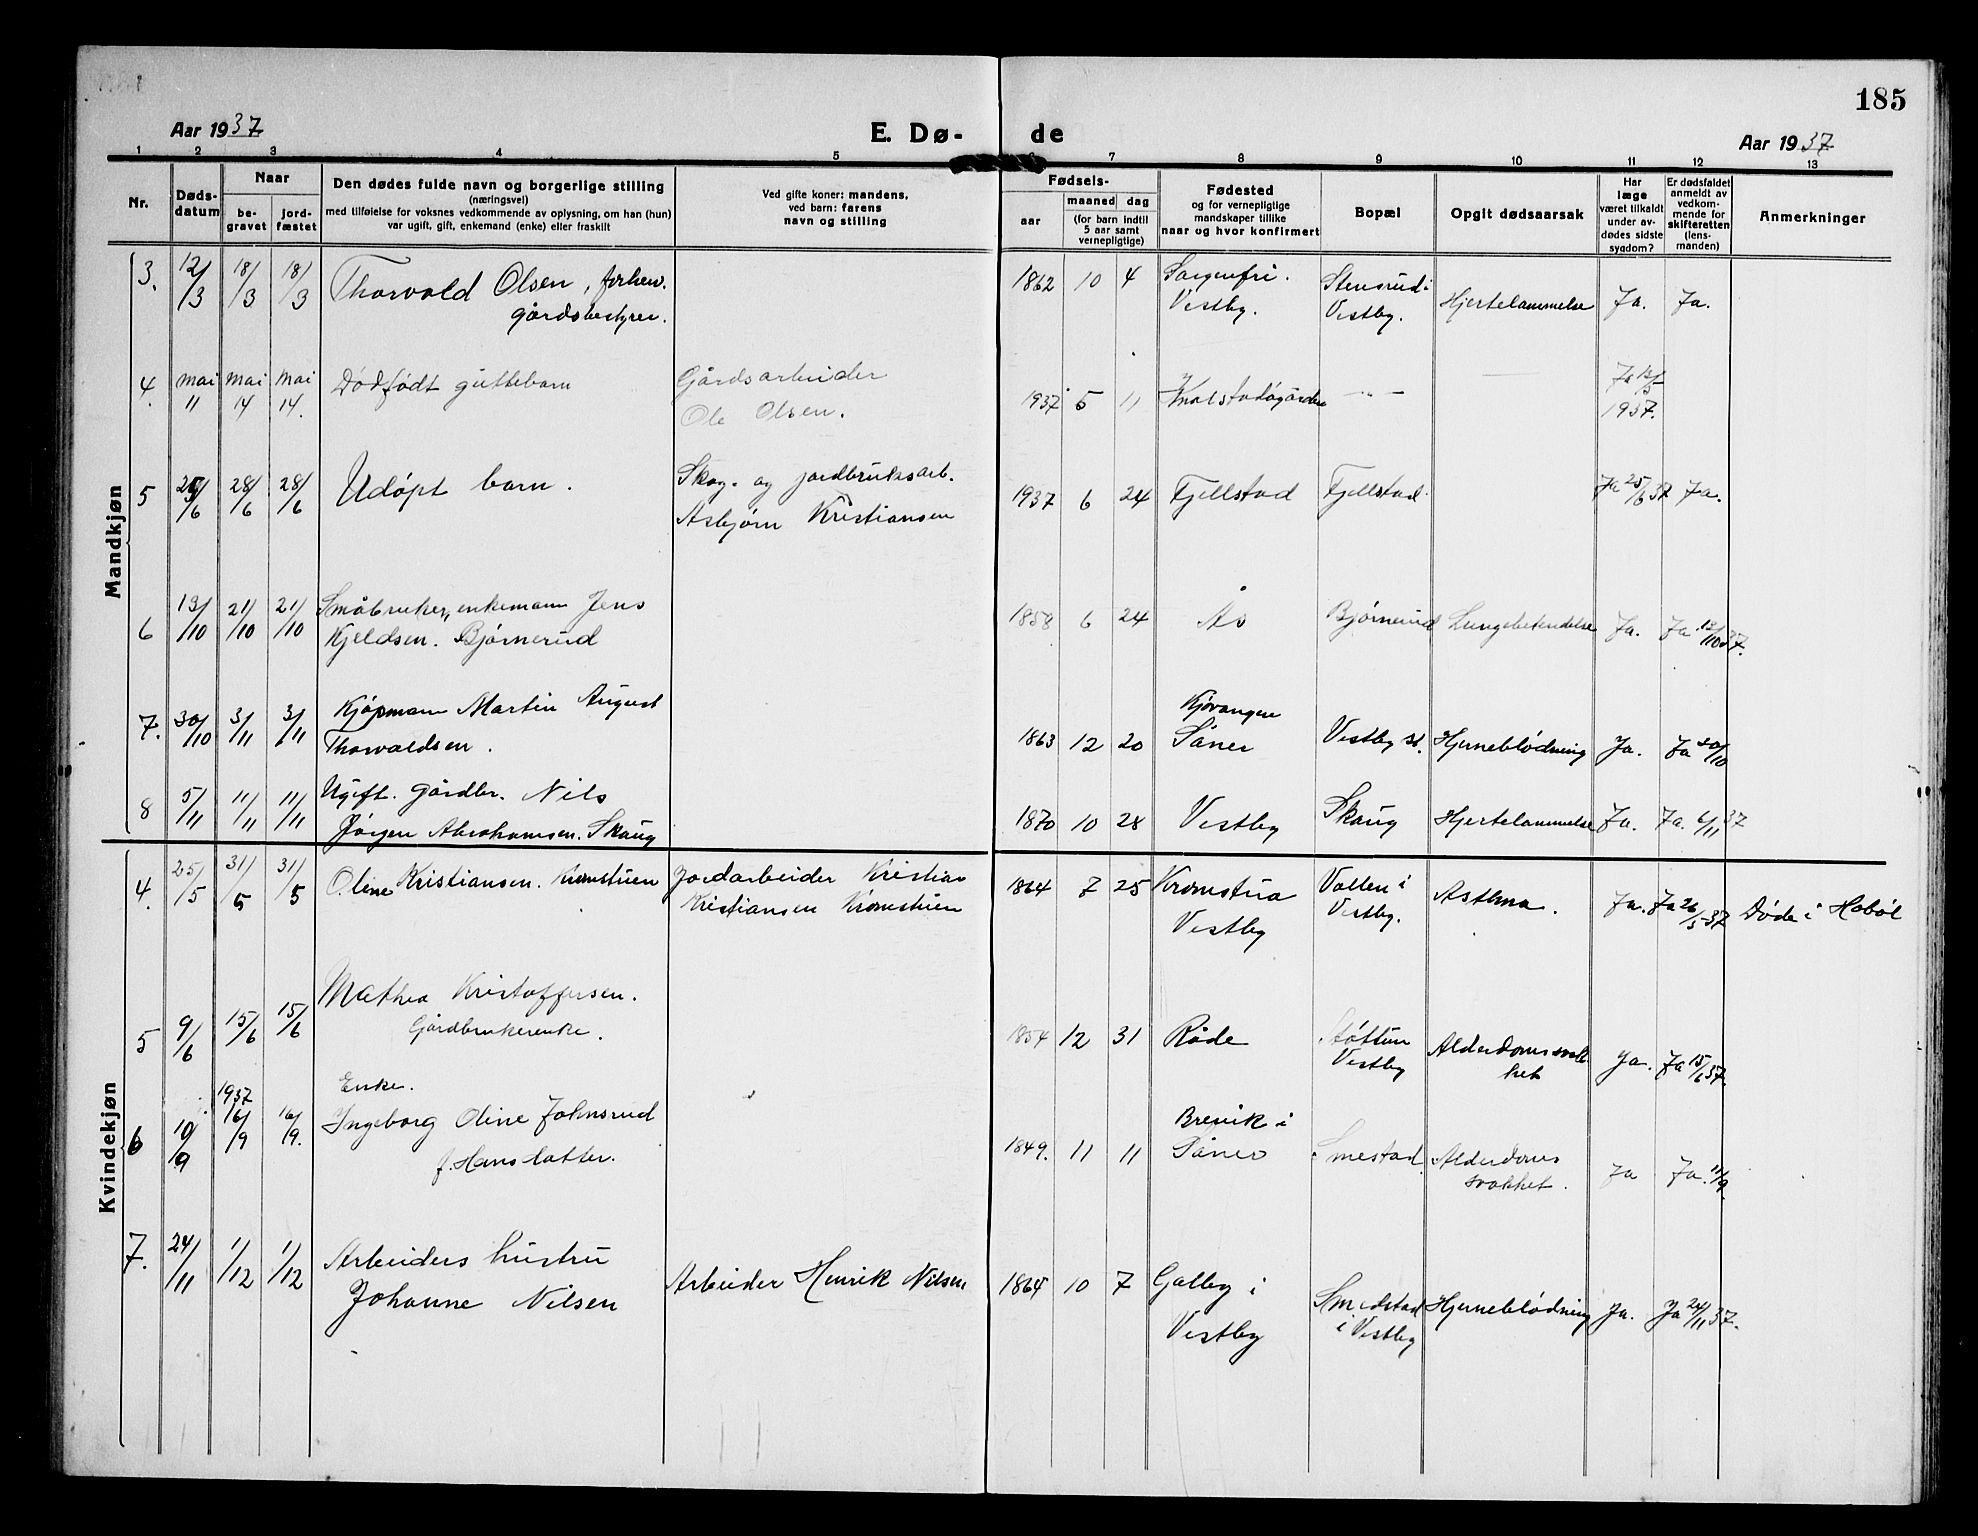 185
Aar 1937
E. Dø-
de
Aar 1937
1 2 3 4 5 7 8 9 10 11 12 13
Nr.
Døds-
datum
Naar
be-
gravet
jord-
fæstet
Den dødes fulde navn og borgerlige stilling
(næringsvei)
med tilføielse for voksnes vedkommende av oplysning, om han (hun)
var ugift, gift, enkemand (enke) eller fraskilt
Ved gifte koner: mandens,
ved barn: farens
navn og stilling
Fødsels-
aar
maaned dag
(for barn indtil
5 aar samt
vernepligtige)
Fødested
og for vernepligtige
mandskaper tillike
naar og hvor konfirmert
Bopæl
Opgit dødsaarsak
Har
læge
været tilkaldt
under av-
dødes sidste
sygdom?
Er dødsfaldet
anmeldt av
vedkom-
mende for
skifteretten
(lens-
manden)
Anmerkninger
Mandkjøn
3. 12/3 18/3 18/3 Thorvald Olsen, forhen.
gårdsbestyrer.
1862 10 4 Sorgenfri.
Vestby.
Stensrud i
Vestby.
Hjertelammelse Ja. Ja.
4. mai 11 mai 14 mai 14. Dødfødt guttebarn
Gårdsarbeider
Ole Olsen.
1937 5 11 Knolstadgården — " — Ja 12/5
1937.
5 28/6 28/6 Udøpt barn.
Skog- og jordbruksarb.
Asbjørn Kristiansen
1937 6 24 Fjellstad Fjellstad. Ja 25/6 37 Ja.
6 13/10 21/10 21/10 Småbruker, enkemann Jens
Kjeldsen. Bjørnerud
1858 6 24 Ås Bjørnerud Lungebetendelse Ja. Ja 13/10 37.
7. 30/10 3/11 3/11 Kjøpmann Martin August
Thorvaldsen.
1863 12 20 Kjøvangen
Såner
Vestby st. Hjerneblødning Ja. Ja 30/10
8 5/11 11/11 11/11 Ugift. gårdbr. Nils
Jørgen Abrahamsen. Skaug
1870 10 28 Vestby Skaug Hjertelammelse Ja. Ja. 6/11 37
Kvindekjøn
4. 25/5 31/5 31/5 Oline Kristiansen. Kromstuen Jordarbeider Kristian
Kristiansen Kromstuen
1864 7 25 Kromstua
Vestby
Vollen i
Vestby.
Asthma. Ja. Ja 26/5 37 Døde i Hobøl
5 9/6 15/6 15/6 Mathea Kristoffersen.
Gårdbrukerenke.
1854 12 31 Råde Støttum
Vestby
Alderdomssvak-
het
Ja. Ja 15/6 37.
6 10/9 1937 16/9 16/9. Enke.
Ingeborg Oline Johnsrud
f. Hanslatter.
1849. 11 11 Brevik i
Såner
Smestad Alderdoms
svakhet.
Ja Ja. 11/9
7. 24/11 1/12 1/12 Arbeiders hustru
Johanne Nilsen
Arbeider Henrik Nilsen
1864 10 7 Galby i
Vestby
Smedstad
i Vestby
Hjerneblødning Ja. Ja 24/11 37.